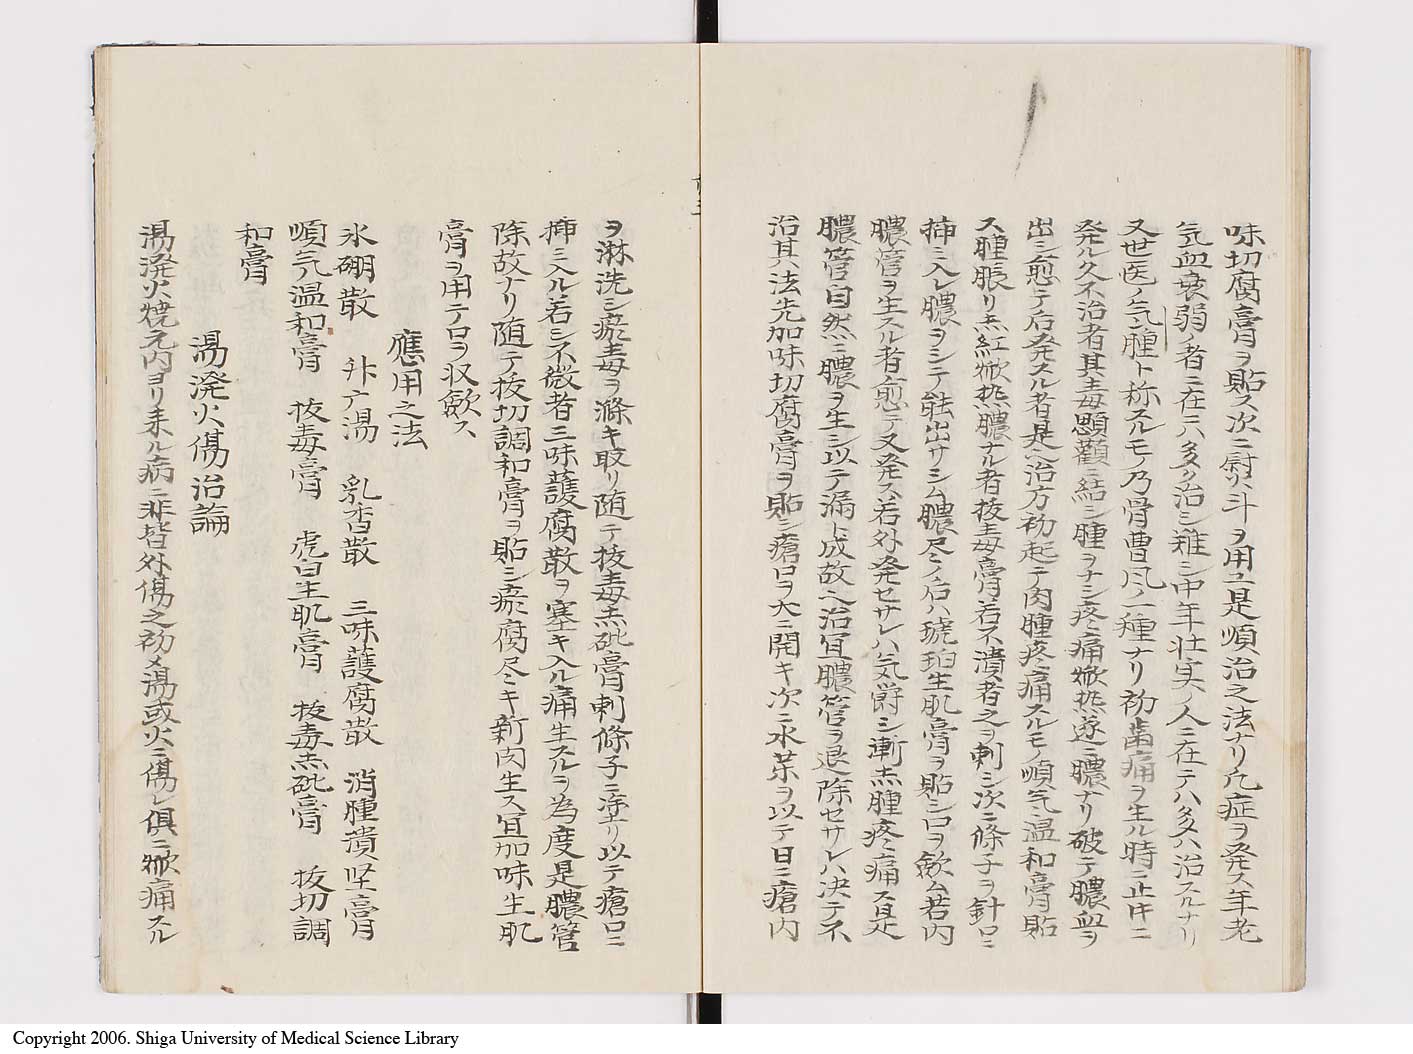 味切腐膏ヲ貼ス次ニ尉リ斗ヲ用ユ是順治之法ナリ凡症ヲ発ス年老
気血衰弱ノ者ニ在ニハ多ク治シ難シ中年壮実人ニ在テハ多ハ治スルナリ
又世医ノ気ノ腫ト称スルモノ乃骨曹風ノ一種ナリ初歯痛ヲ生ル時ニ止片ニ
発ル久不治者其毒顋顴ニ結シ腫ヲナシ疼痛焮热遂ニ膿ナリ破テ膿血ヲ
出シ愈テ后発スル者是ヘ治方初起テ肉腫疼痛スルモノ順气温和膏貼
ス腫脹リ赤紅焮热膿ナル者抜毒膏若不潰者之ヲ刺シ次ニ條子ヲ針口ニ
挿ミ入レ膿ヲシテ能出サシム膿尽ノ后ハ琥珀生肌膏ヲ貼シ口ヲ斂ム若内
膿管ヲ生スル者愈テ又発ス若外発セサレハ気欝シ漸赤腫疼痛ス是
膿管自然ニ膿ヲ生シ以テ漏ト成故ヘ治冝膿管ヲ退除セサレハ决テ不
治其法先加味切腐膏ヲ貼シ瘡口ヲ大ニ開キ次ニ水薬ヲ以テ日ニ瘡内
ヲ淋洗シ瘀毒ヲ滌キ取リ随テ抜毒赤砒膏剌條子ニ塗リ以テ瘡口ニ
挿ミ入ル若シ不微者三味護腐散ヲ塞キ入ル痛生スルヲ為度是膿管
除故ナリ随テ抜切調和膏ヲ貼シ瘀腐尽キ新肉生ス冝加味生肌
膏ヲ用テ口ヲ収斂ス
應用之法
氷硼散 升广湯 乳香散 三味護腐散 消腫潰坚膏
順气温和膏 抜毒膏 虎白生肌膏 抜毒赤砒膏 抜切調
和膏
湯溌火傷治論
湯溌火焼元内ヨリ来ル病ニ非皆外傷之初メ湯或火ニ傷レ俱ニ焮痛スル
Copyright 2006. Shiga University of Medical Science Library